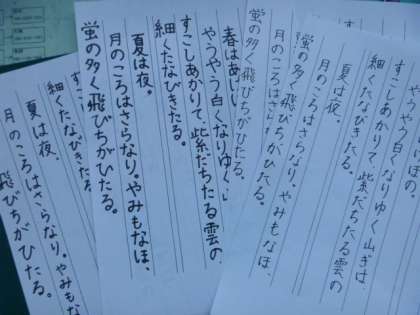 ぼの。
やう白くなりゆく山ぎは、
すこしあかりて、紫だちたる雲の
細くたなびきたる。
夏は夜。
月のころはさらなり。やみもなほ、
蛍の多く飛びちがひたる。
蛍の多く飛びちがひたる。
春はあ
やうやう白くなりゆく
すこしあかりて、紫だちたる雲の
細くたなびきたる。
夏は夜。
月のころはさらなり。やみもなほ、
蛍の多く飛びちがひたる。
すこ
細くたなびき
夏は夜。
月のころはさらなり。やみもな
飛びちがひたる。